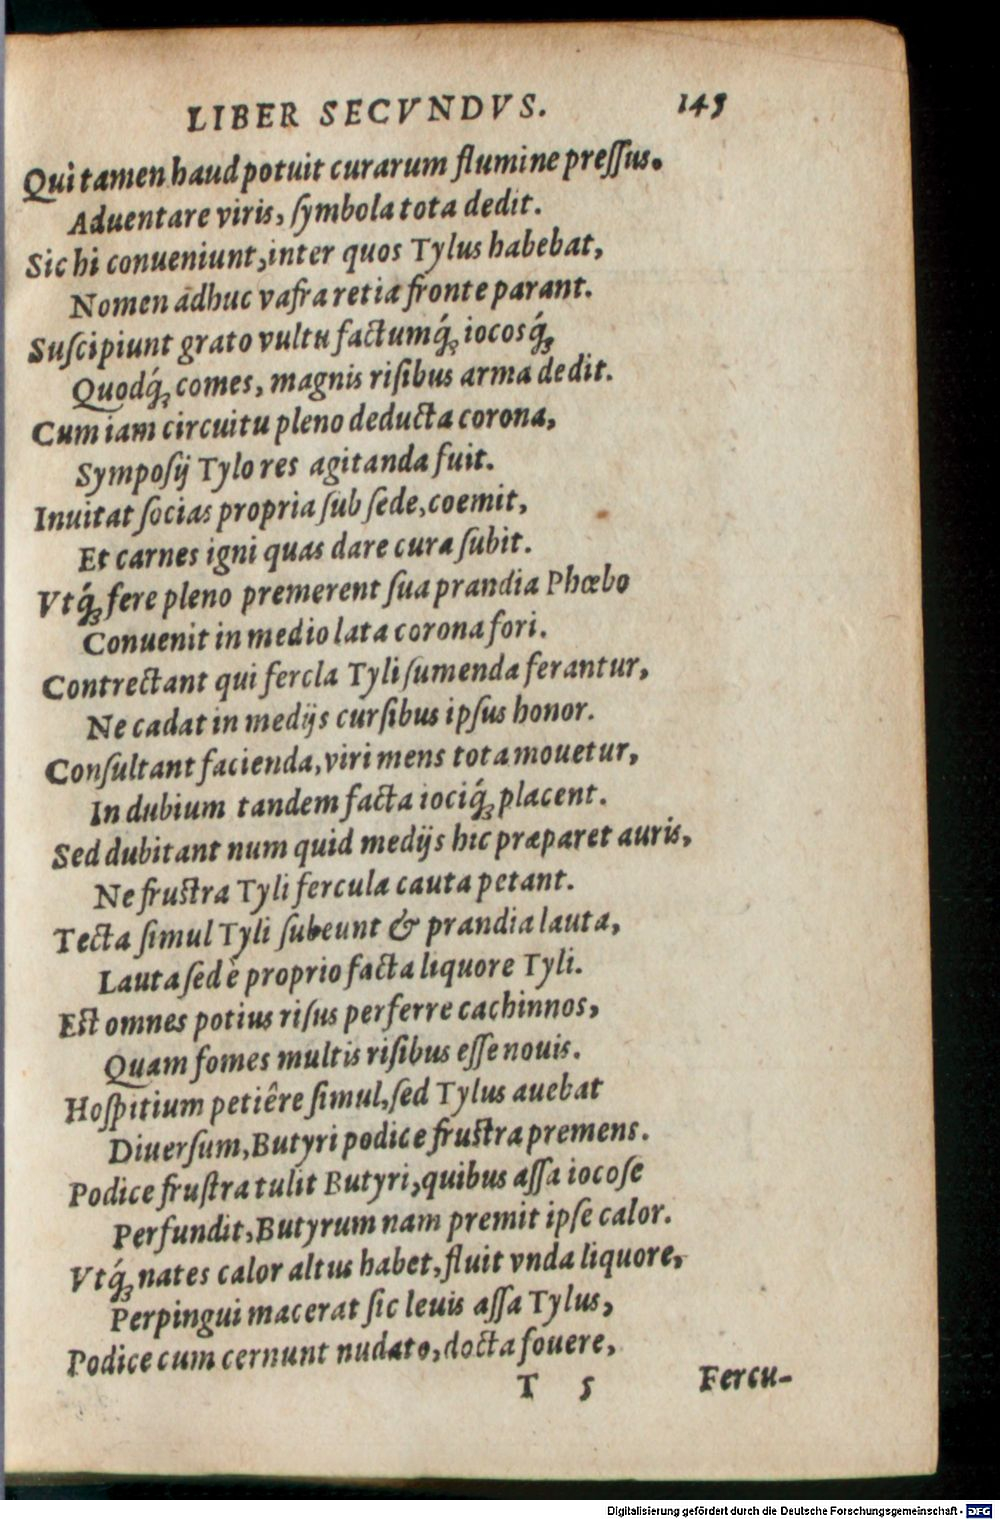 LIBER SECVNDVS. 145
Qui tamen haud potuit curarum flumine preſſus.
Aduentare viris, ſymbola tota dedit.
Sic hi conueniunt, inter quos Tylus habebat,
Nomen adhuc vafra retia fronte parant.
Suſcipiunt grato vultu factumq́ꝫ iocosq́ꝫ,
Quodq́ꝫ comes, magnis riſibus arma dedit.
Cum iam circuitu pleno deducta corona,
Sympoſij Tylo res agitanda fuit.
Inuitat ſocias propria ſub ſede, coemit,
Et carnes igni quas dare cura ſubit.
Vtq́ꝫ fere pleno premerent ſua prandia Phœbo
Conuenit in medio lata corona fori.
Contrectant qui fercla Tyli ſumenda ferantur,
Ne cadat in medijs curſibus ipſus honor.
Conſultant facienda, viri mens tota mouetur,
In dubium tandem facta iociq́ꝫ placent.
Sed dubitant num quid medijs hic præparet auris,
Ne fruſtra Tyli fercula cauta petant.
Tecta ſimul Tyli ſubeunt & prandia lauta,
Lauta ſed è proprio facta liquore Tyli.
Eſt omnes potius riſus perferre cachinnos,
Quam fomes multis riſibus eſſe nouis.
Hoſpitium petiêre ſimul, ſed Tylus auebat
Diuerſum, Butyri podice fruſtra premens.
Podice fruſtra tulit Butyri, quibus aſſa iocoſe
Perfundit, Butyrum nam premit ipſe calor.
Vtq́ꝫ nates calor altus habet, fluit vnda liquore,
Perpingui macerat ſic leuis aſſa Tylus,
Podice cum cernunt nudato, docta fouere,
T 5 Fercu-
Digitalisierung gefördert durch die Deutsche Forschungsgemeinschaft - DFG